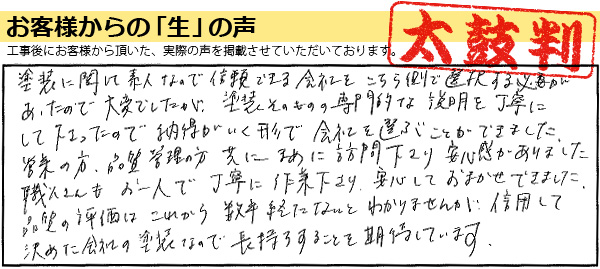 お客様からの「生」の声
工事後にお客様から頂いた、実際の声を掲載させていただいております。
太鼓判
塗装に関して素人なので信頼できる会社をこちら側で選択する必要が
あったので大変でしたが、塗装そのものの専門的な説明を丁寧に
して下さったので納得がいく形で会社を選ぶことができました。
営業の方、品質管理の方共にまめに訪問下さり安心感がありました
職人さんもお一人で丁寧に作業下さり、安心しておまかせできました。
品質の評価はこれから数年経たないとわかりませんが、信用して
決めた会社の塗装なので長持ちすることを期待しています。